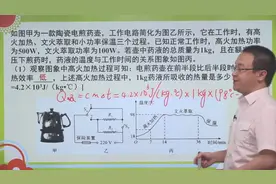 如图甲为一款陶瓷电煎药壶,工作电路简化为图乙所示,它在工作时,有高
火加热、文火萃取和小功率保温三个过程。已知正常工作时,高火加热功率为
为500W,文火萃取功率为100W。若壶中药液的总质量为1kg,且在额定电
压下煎药时,药液的温度与工作时间的关系图象如图丙。
(1)观察图象中高火加热过程可知:电煎药壶在前半段比后半段时间加
热效率 低 ,上述高火加热过程中,1kg药液所吸收的热量是多少
=4.2×10³J/(kg·℃)]
Q吸=cmΔt=4.2×10³J/(kg·℃)×1kg×(98℃
220 V
甲
乙
丙